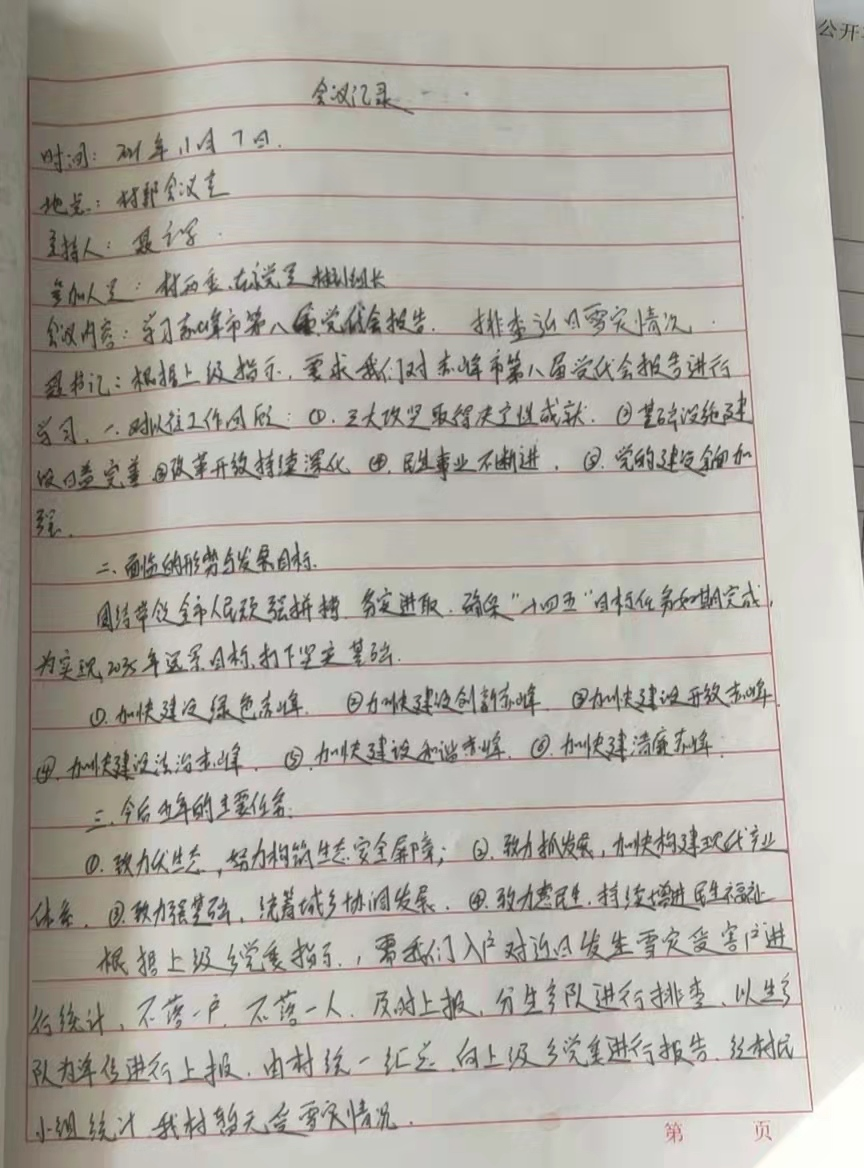 公开
会议记录
时间：2021年11月7日.
地点：村部会议室
主持人：聂
参加人员：村两委、在家党员 村民组长
会议内容：学习赤峰市第八届党代会报告. 排查近日雪灾情况.
书记：根据上级指示，要求我们对赤峰市第八届党代会报告进行
学习，一、对以往工作回顾：①.三大攻坚取得决定性成就. ②基础设施建
设日益完善③改革开放持续深化 ④.民生事业不断进. ⑤.党的建设全面加
强.
二、面临的形势与发展目标.
团结带领全市人民顽强拼搏 务实进取.确保"十四五"目标任务如期完成，
为实现2035年远景目标,打下坚实基础.
①.加快建设绿色赤峰. ②加快建设创新赤峰. ③加快建设开放赤峰.
④.加快建设法治赤峰. ⑤.加快建设和谐赤峰. ⑥.加快建清廉赤峰.
三.今后五年的主要任务:
①.致力优生态，努力构筑生态安全屏障； ②.致力抓发展，加快构建现代产业
体系. ③.致力强基础，统筹城乡协调发展. ④.致力惠民生.持续增进民生福祉
根据上级乡党委指示.，需我们入户对近日发生雪灾受害户进
行统计，不落一户.不落一人.及时上报.分生产队进行排查.以生产
队为单位进行上报.由村统一汇总.向上级乡党委进行报告.经村民
小组统计.我村暂无受雪灾情况.
第 页